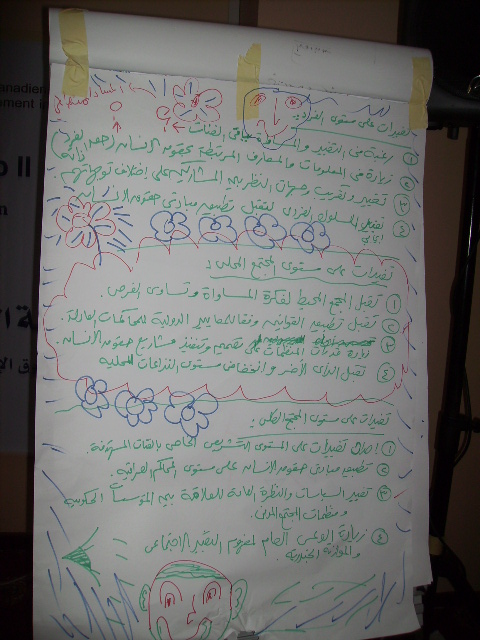 تغيرات على مستوى الافراد:
① رغبة في التغير والمساواة بباقي الفئات
② زيادة في المعلومات والمعارف المرتبطة بحقوق الانسان
③ تغيير وتقريب وجهات النظر بين المشاركين على اختلاف توجهاتهم.
④ تعديل السلوك الفردي لتقبل تطبيق مبادئ حقوق الانسان
تغيرات على مستوى المجتمع المحلي:
① تقبل المجتمع المحيط لفكرة المساواة وتساوي الفرص.
② تقبل تطبيق القوانين وفقا للمعايير الدولية للمحاكمات العادلة.
③ زيادة قدرات المنظمات على تصميم وتنفيذ مشاريع حقوق الانسان.
④ تقبل الرأي الآخر وانخفاض مستوى النزاعات المحلية
تغيرات على مستوى المجتمع الكلي:
① احداث تغيرات على المستوى التشريعي الخاص بالفئات المستهدفة.
② تطبيق مبادئ حقوق الانسان على مستوى المحاكم العراقية.
③ تغيير السياسات والنظرة العامة للعلاقة بين المؤسسات الحكومية
ومنظمات المجتمع المدني.
④ زيادة الوعي العام لمفهوم التغير الاجتماعي
والموازنة الجندرية.
anadien
ement in
o II